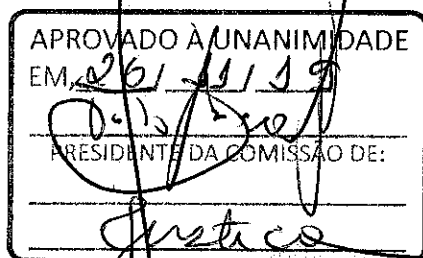 APROVADO À UNANIMIDADE
EM, 26/11/19
PRESIDENTE DA COMISSÃO DE:
Justiça